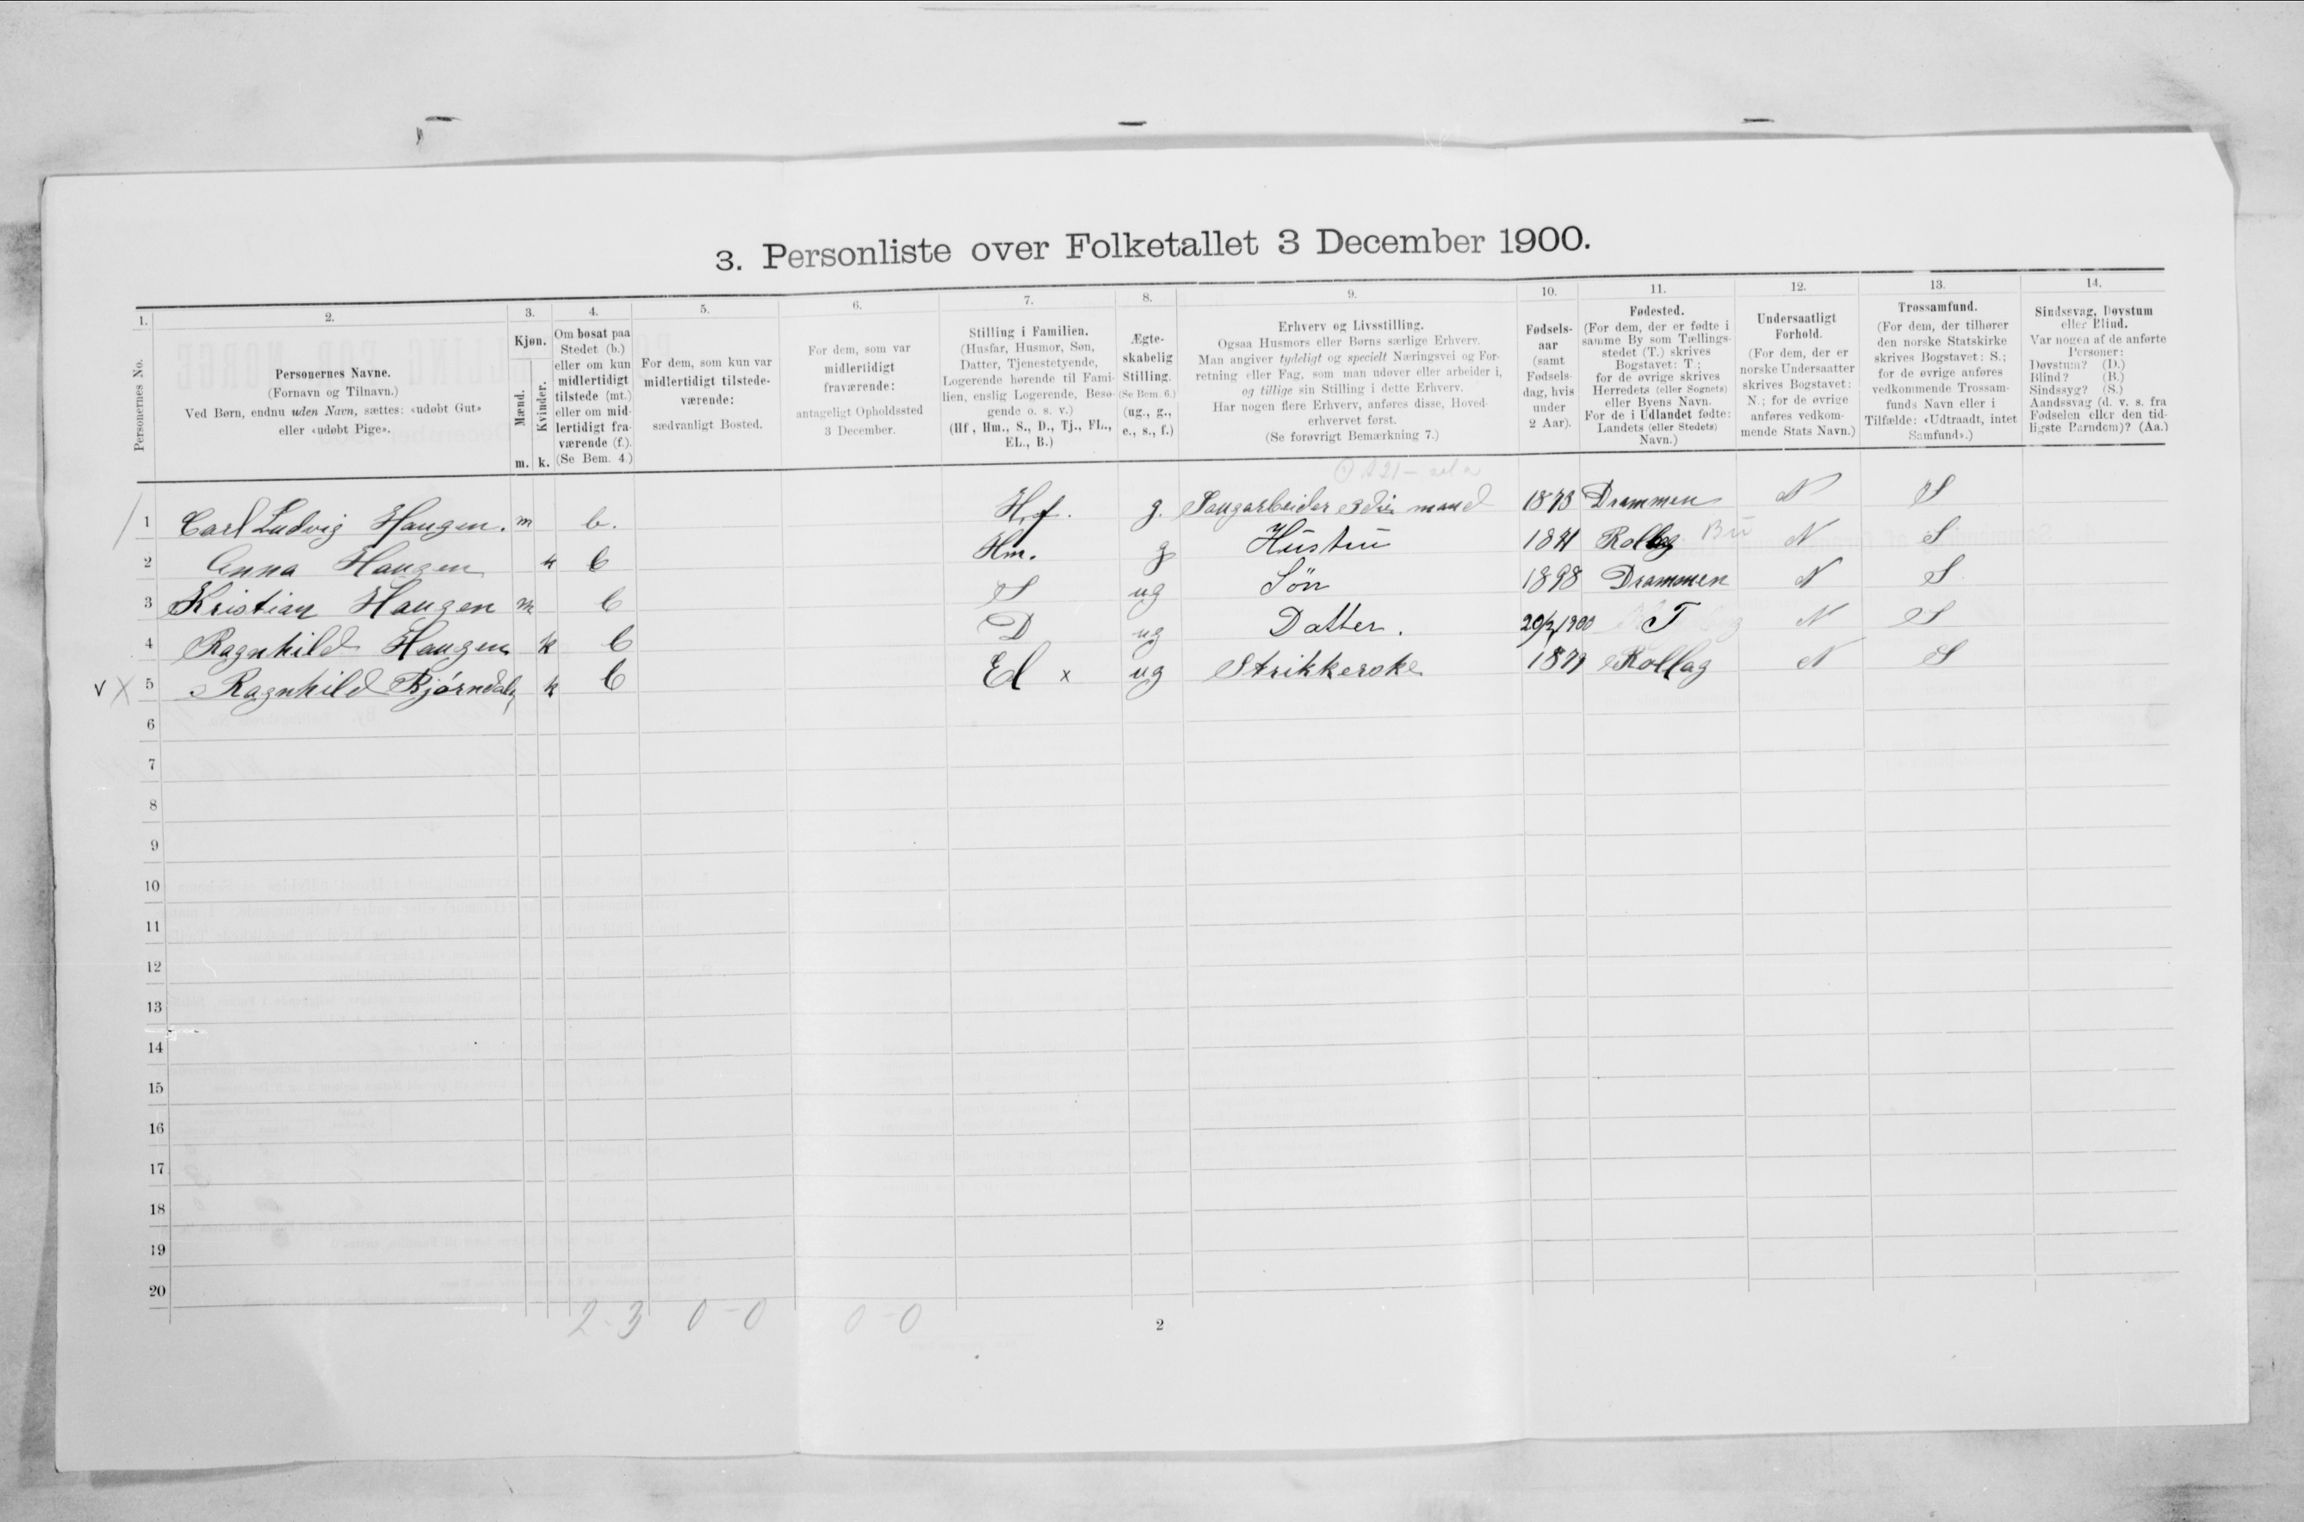 3. Personliste over Folketallet 3 December 1900.
1. 2. 3. 4. 5. 6. 7. 8. 9. 10. 11. 12. 13. 14.
Personernes No.
Personernes Navne.
(Fornavn og Tilnavn.)
Ved Børn, endnu uden Navn, sættes: «udøbt Gut»
eller «udøbt Pige».
Kjøn.
Mænd.
Kvinder.
m. k.
Om bosat paa
Stedet (b.)
eller om kun
midlertidigt
tilstede (mt.)
eller om mid-
lertidigt fra-
værende (f.).
(Se Bem. 4.)
For dem, som kun var
midlertidigt tilstede-
værende:
sædvanligt Bosted.
For dem, som var
midlertidigt
fraværende:
antageligt Opholdssted
3 December.
Stilling i Familien.
(Husfar, Husmor, Søn,
Datter, Tjenestetyende,
Logerende hørende til Fami-
lien, enslig Logerende, Besø-
gende o. s. v.)
(Hf., Hm., S., D., Tj., FL.,
EL., B.)
Ægte-
skabelig
Stilling.
(Se Bem. 6.)
(ug., g.,
e., s., f.)
Erhverv og Livsstilling.
Ogsaa Husmors eller Børns særlige Erhverv.
Man angiver tydeligt og specielt Næringsvei og For-
retning eller Fag, som man udøver eller arbeider i,
og tillige sin Stilling i dette Erhverv.
Har nogen flere Erhverv, anføres disse, Hoved-
erhvervet først.
(Se forøvrigt Bemærkning 7.)
Fødsels-
aar
(samt
Fødsels-
dag, hvis
under
2 Aar).
Fødested.
(For dem, der er fødte i
samme By som Tællings-
stedet (T.) skrives
Bogstavet: T.;
for de øvrige skrives
Herredets (eller Sognets)
eller Byens Navn.
For de i Udlandet fødte:
Landets (eller Stedets)
Navn.)
Undersaatligt
Forhold.
(For dem, der er
norske Undersaatter
skrives Bogstavet:
N.; for de øvrige
anføres vedkom-
mende Stats Navn.)
Trossamfund.
(For dem, der tilhører
den norske Statskirke
skrives Bogstavet: S.;
for de øvrige anføres
vedkommende Trossam-
funds Navn eller i
Tilfælde: «Udtraadt, intet
Samfund».)
Sindssvag, Døvstum
eller Blind.
Var nogen af de anførte
Personer:
Døvstum? (D.)
Blind? (B.)
Sindssyg? (S.)
Aandssvag (d. v. s. fra
Fødselen eller den tid-
ligste Barndom)? (Aa.)
1 Carl Ludvig Haugen. m b. Hf. g. mand 1873 Drammen N S
2 Anna Haugen k b Hm. g Hustru Rollag Bu N S
3 Kristian Haugen m b S ug Søn 1898 Drammen N S
4 Ragnhild Haugen k b D ug Datter. 1900 T N S
v X 5 Ragnhild Bjørndalen k b El x ug Strikkerske 1879 Rollag N S
6
7
8
9
10
11
12
13
14
15
16
17
18
19
20
2-3 0-0 0-0
2